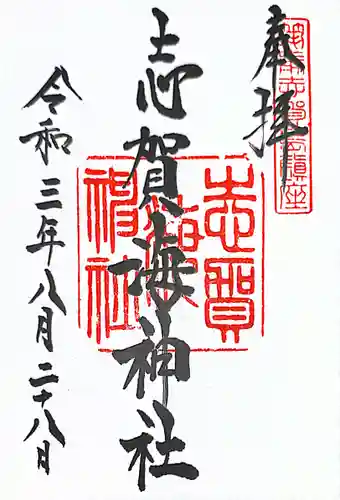 奉拝
志賀海神社
令和三年八月二十八日
志賀海神社